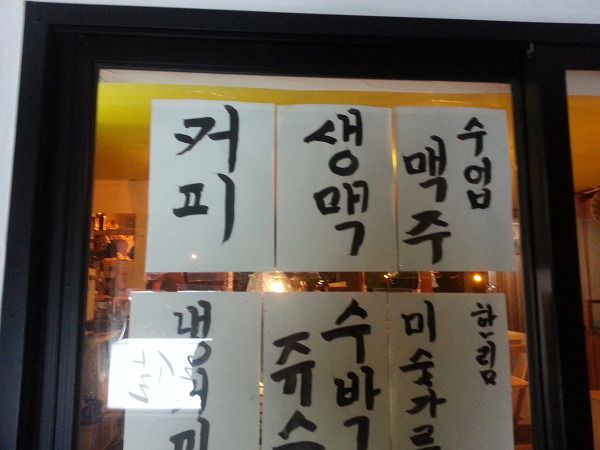 커피
생맥
수업
맥주
냉커피
수박
쥬스
한림
미숫가루